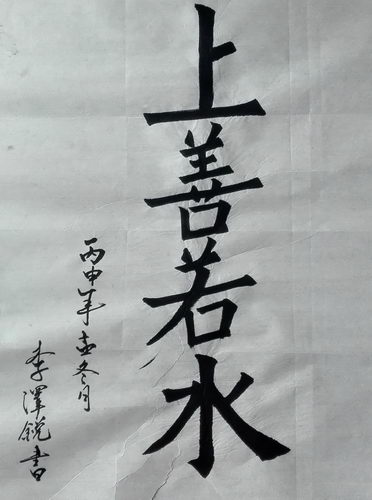 上善若水
丙申年孟冬月
李澤銳書